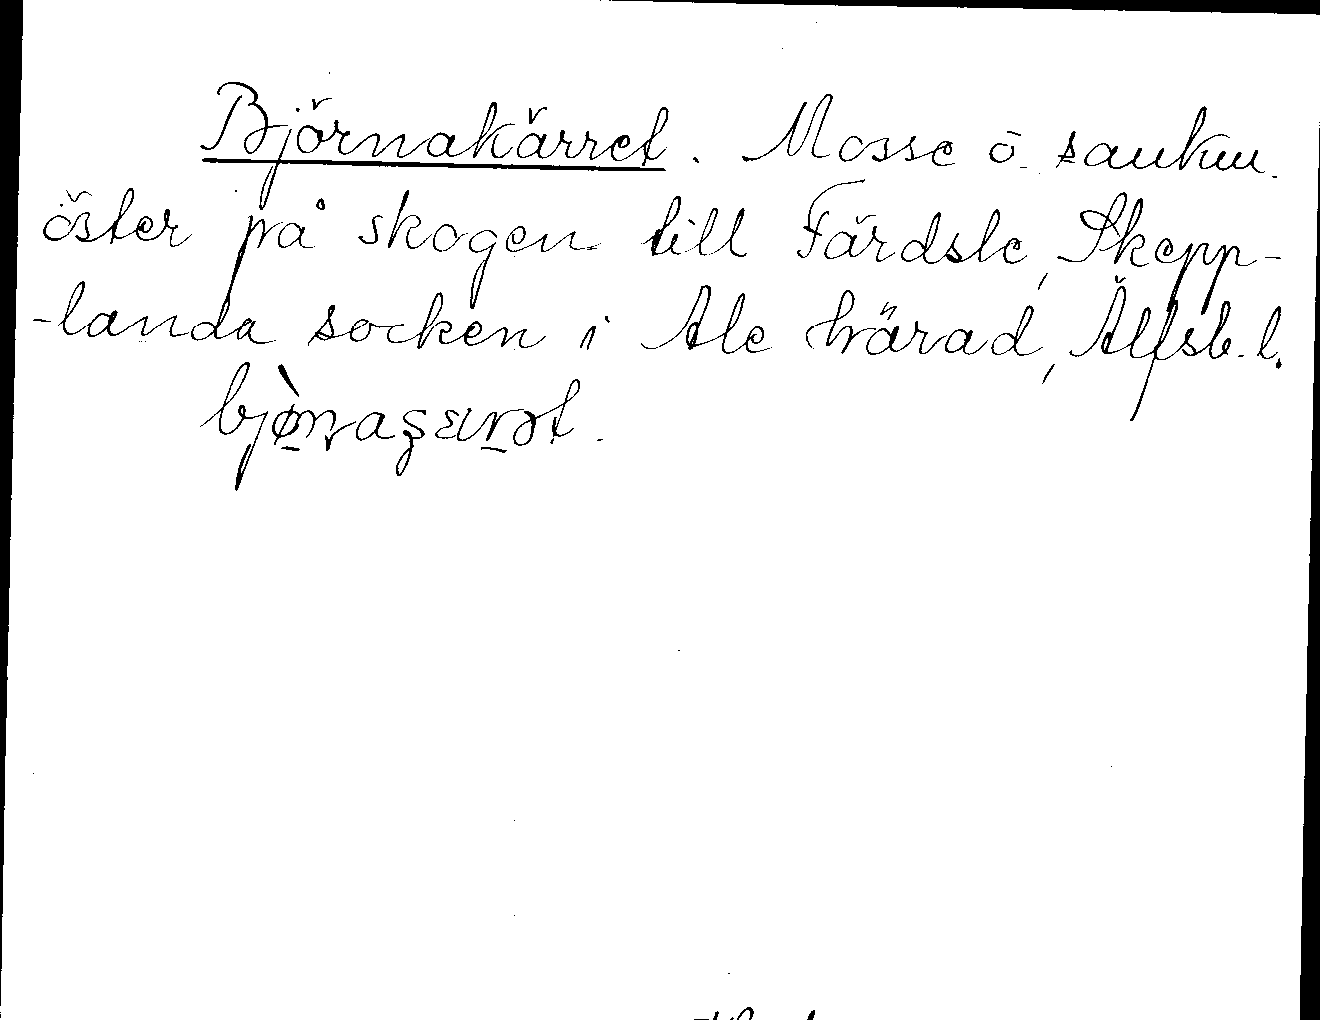 Björnakärret. Mosse o. sankm.
öster på skogen till Färdsle, Skepp-
-landa socken i Ale härad, Älfsb. l.